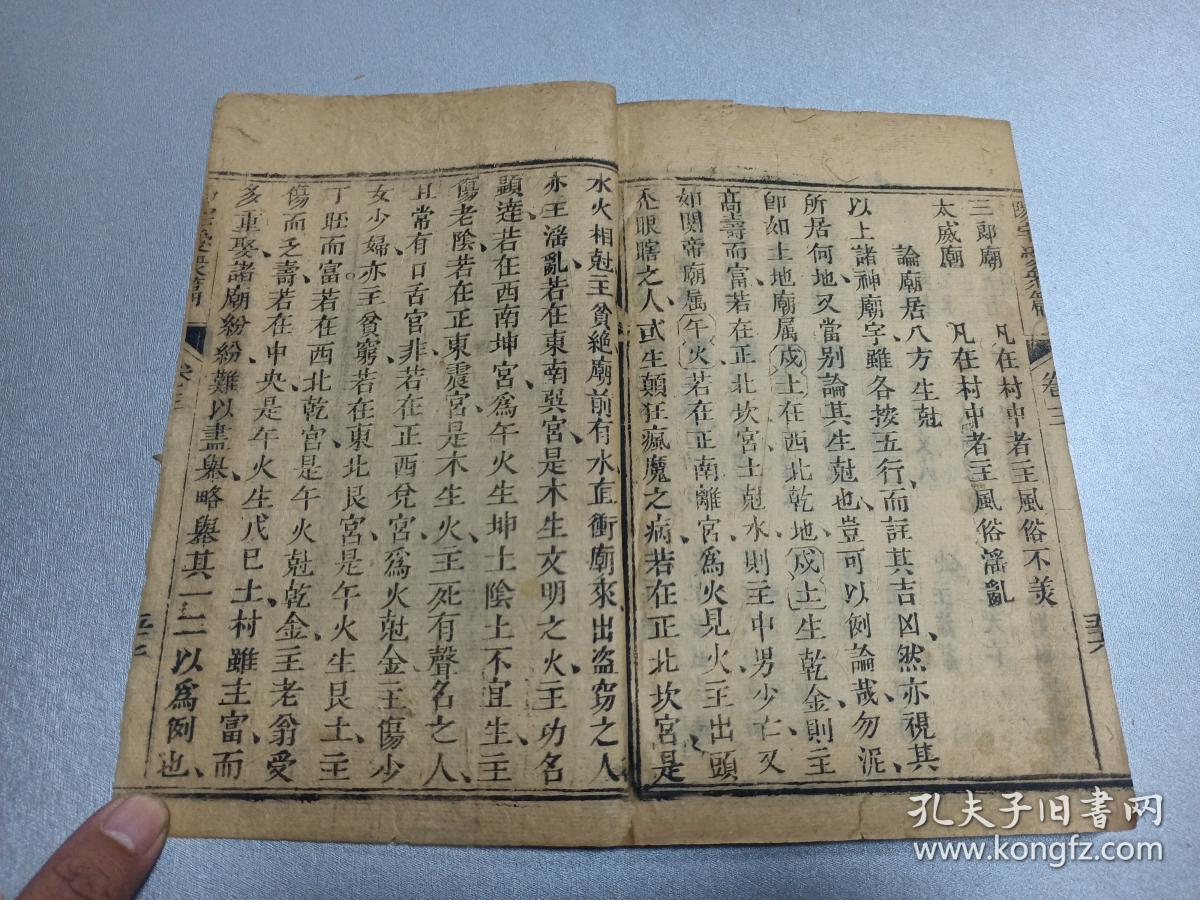 卷三
三郎廟 凡在村中者主風俗不美
太歲廟 凡在村中者主風俗滛亂
論廟居八方生尅
以上諸神廟字雖各按五行而註其吉凶然亦視其
所居何地又當别論其生尅也豈可以例論哉勿泥
卽如土地廟属戍土在西北乾地戍土生乾金則主
高壽而富若在正北坎宮土尅水則主中男少亡又
如関帝廟属午火若在正南離宮爲火見火主出頭
禿眼瞎之人或生顛狂瘋魔之病若在正北坎宮是
水火相尅主貧絶廟前有水直衝廟來出盗竊之人
亦主滛亂若在東南巽宮是木生文明之火主功名
顕達若在西南坤宮爲午火生坤土陰土不宜生主
傷老陰若在正東震宮是木生火主死有聲名之人
且常有口舌官非若在正西兌宮爲火尅金主傷少
女少婦亦主貧窮若在東北艮宮是午火生艮土主
丁旺而富若在西北乾宮是午火尅乾金主老翁受
傷而乏壽若在中央是午火生戊巳土村雖主富而
多重娶諸廟紛紛難以盡舉略舉其一二以爲例也
卷三
孔夫子旧書网
www.kongfz.com